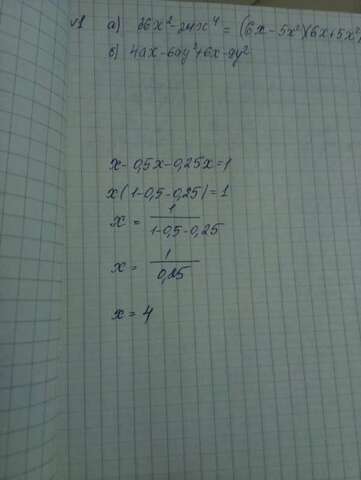 √1 а) 36x² - 24x⁴ = (6x - 5x²)(6x + 5x²)
б) 4ax - 6ay² + 6x - 9y²
x - 0,5x - 0,25x = 1
x(1 - 0,5 - 0,25) = 1
x = 1/(1 - 0,5 - 0,25)
x = 1/0,25
x = 4